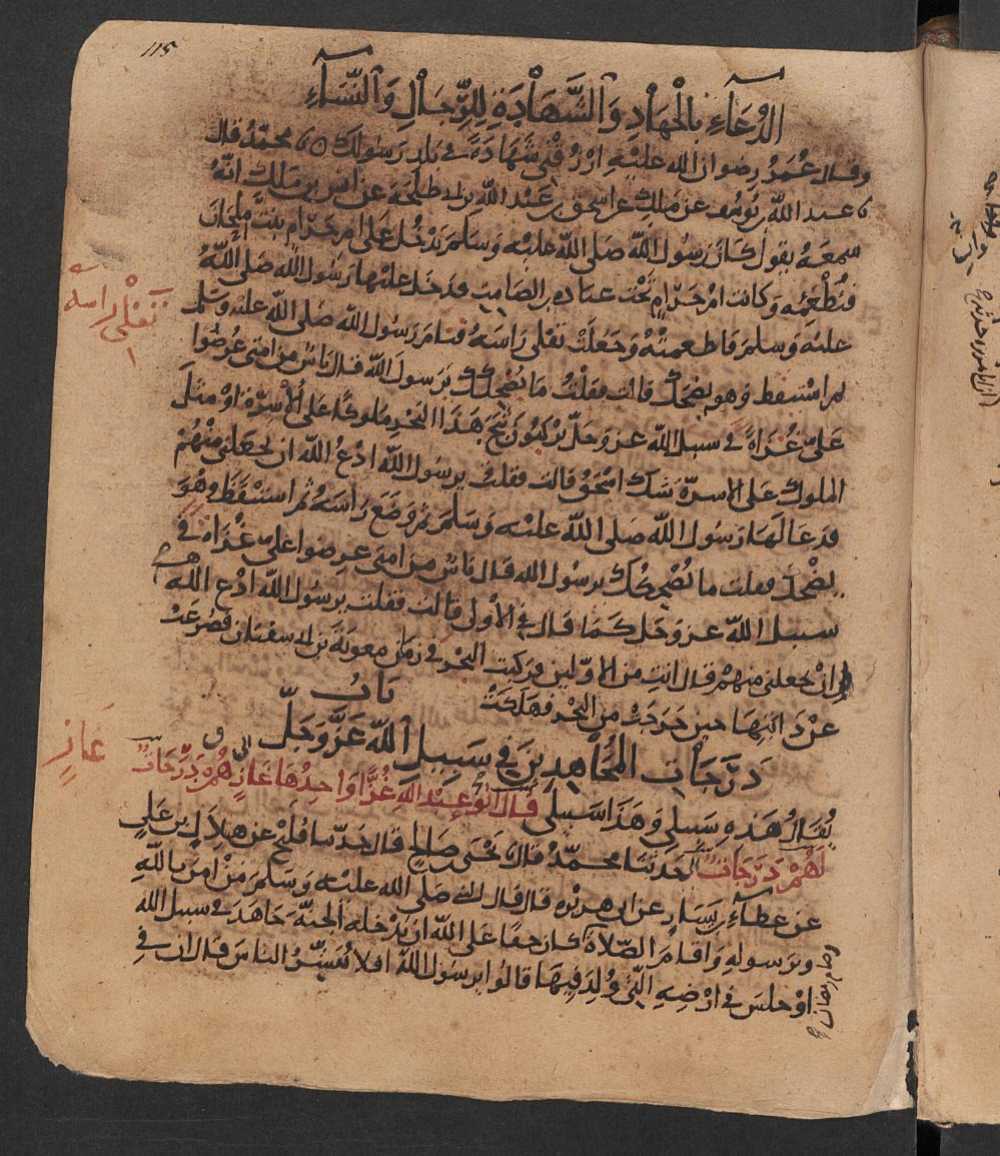 115
الدُّعَآءِ بِالْجِهَادِ وَالشَّهَادَةِ لِلرِّجَالِ وَالنِّسَآءِ
وقال عُمَرُ رضوان الله عليه ارْزُقْنِى شَهَادَةً فى بَلَدِ رَسُولِك نا محمّد قال
نا عبد اللّه بن يُوسُف عن مٰلِك عن اسحق بن عَبْد اللّه بن ابى طلحَة عن انس بن مٰلك انّهُ
سمعَهُ يقول كَانَ رَسُول اللّه صَلى اللّه عليْه وَسَلم يَدْخُل عَلى ام حَرَام بنت مِلْحَانَ
فتُطْعِمُه وَكانت امُّ حَرَامٍ تَحْت عبَادة بن الصَّامِتِ فدَخل عليْها رَسُول اللّه صَلى اللّهُ
عليْه وَسلم فَاطعمتْهُ وَجَعَلَتْ تفلى رَاسَهُ فنَام رَسُول اللّه صَلى اللّه عليْه وَسَلم
تَفْلِى رَاسَهُ
ثم اسْتيقظ وَهو يضحَك قالت فقلْتُ مَا يُضْحِكُكَ يٰرَسولَ اللّه قال نَاسٌ من امتى عُرِضُوا
عَلىّ غُزَاةً فى سبيل اللّه عز وَجلّ يرْكبُونَ ثَبَجَ هَذَا البَحْر مُلوكًا عَلى الأسِرّةِ اوْ مثل
الملوك عَلى الاسرّة شكّ اسْحٰق قالت فقلت يٰرسُول اللّه ادْعُ اللّه ان يجعلنى مِنْهُمْ
فدَعَا لَهَا رَسُول اللّه صَلى اللّه عليْه وَسَلم ثم وَضَعَ رَاسَهُ ثم استيْقَظَ وهُوَ
يضْحك فقلت ما يُضْحِكُك يٰرسُول اللّه قال نَاسٌ من امتى عرضوا علىّ غُزَاةً فى
سبيل اللّه عز وَجل كَمَا قال فى الأوْلى قالت فقلت يٰرسُول اللّه ادْعُ اللّه
ان يجعلنى منهمْ قال انتِ من الاوّلين فركبت البحْر فى زمان معٰويَة بن ابى سفيَان فصُرِعَتْ
عنْ دَابّتِهَا حين خَرَجَتْ من البحْر فهَلَكَتْ
بَابُ
دَرَجَاتِ المُجَاهِدِينَ فى سَبِيلِ اللّهِ عَزَّ وَجَلَّ
يُقَالُ هَذِهِ سَبِيلِى وَهَذَا سَبِيلى قال ابُو عبْد اللّهِ غُزًّا وَاحِدُهَا غَازٍ هُمْ دَرَجَاتٌ
غَازٍ
لَهُمْ دَرَجَاتٌ حَدثنَا محمّدٌ قال نا يَحْيَى بن صَالِحٍ قال حَدّثنَا فُلَيْحٌ عن هِلاَلِ بن عَلىٍ
عن عطآءِ بن يسَارٍ عن ابى هريرَة قال قال النبى صَلى اللّه عليْه وَسَلم مَنْ امن باللّهِ
وبرسولِهِ وَاقَام الصّلاَة كان حقًا عَلى اللّه ان يُدْخله الجنّة جَاهَدَ فى سبيل اللّه
وصام رمضان
او جلسَ فى ارْضِهِ الَّتِى وُلدَ فِيهَا قالوا يٰرسُول اللّه افلا نُبَشِّرُ الناسَ قال ان فى